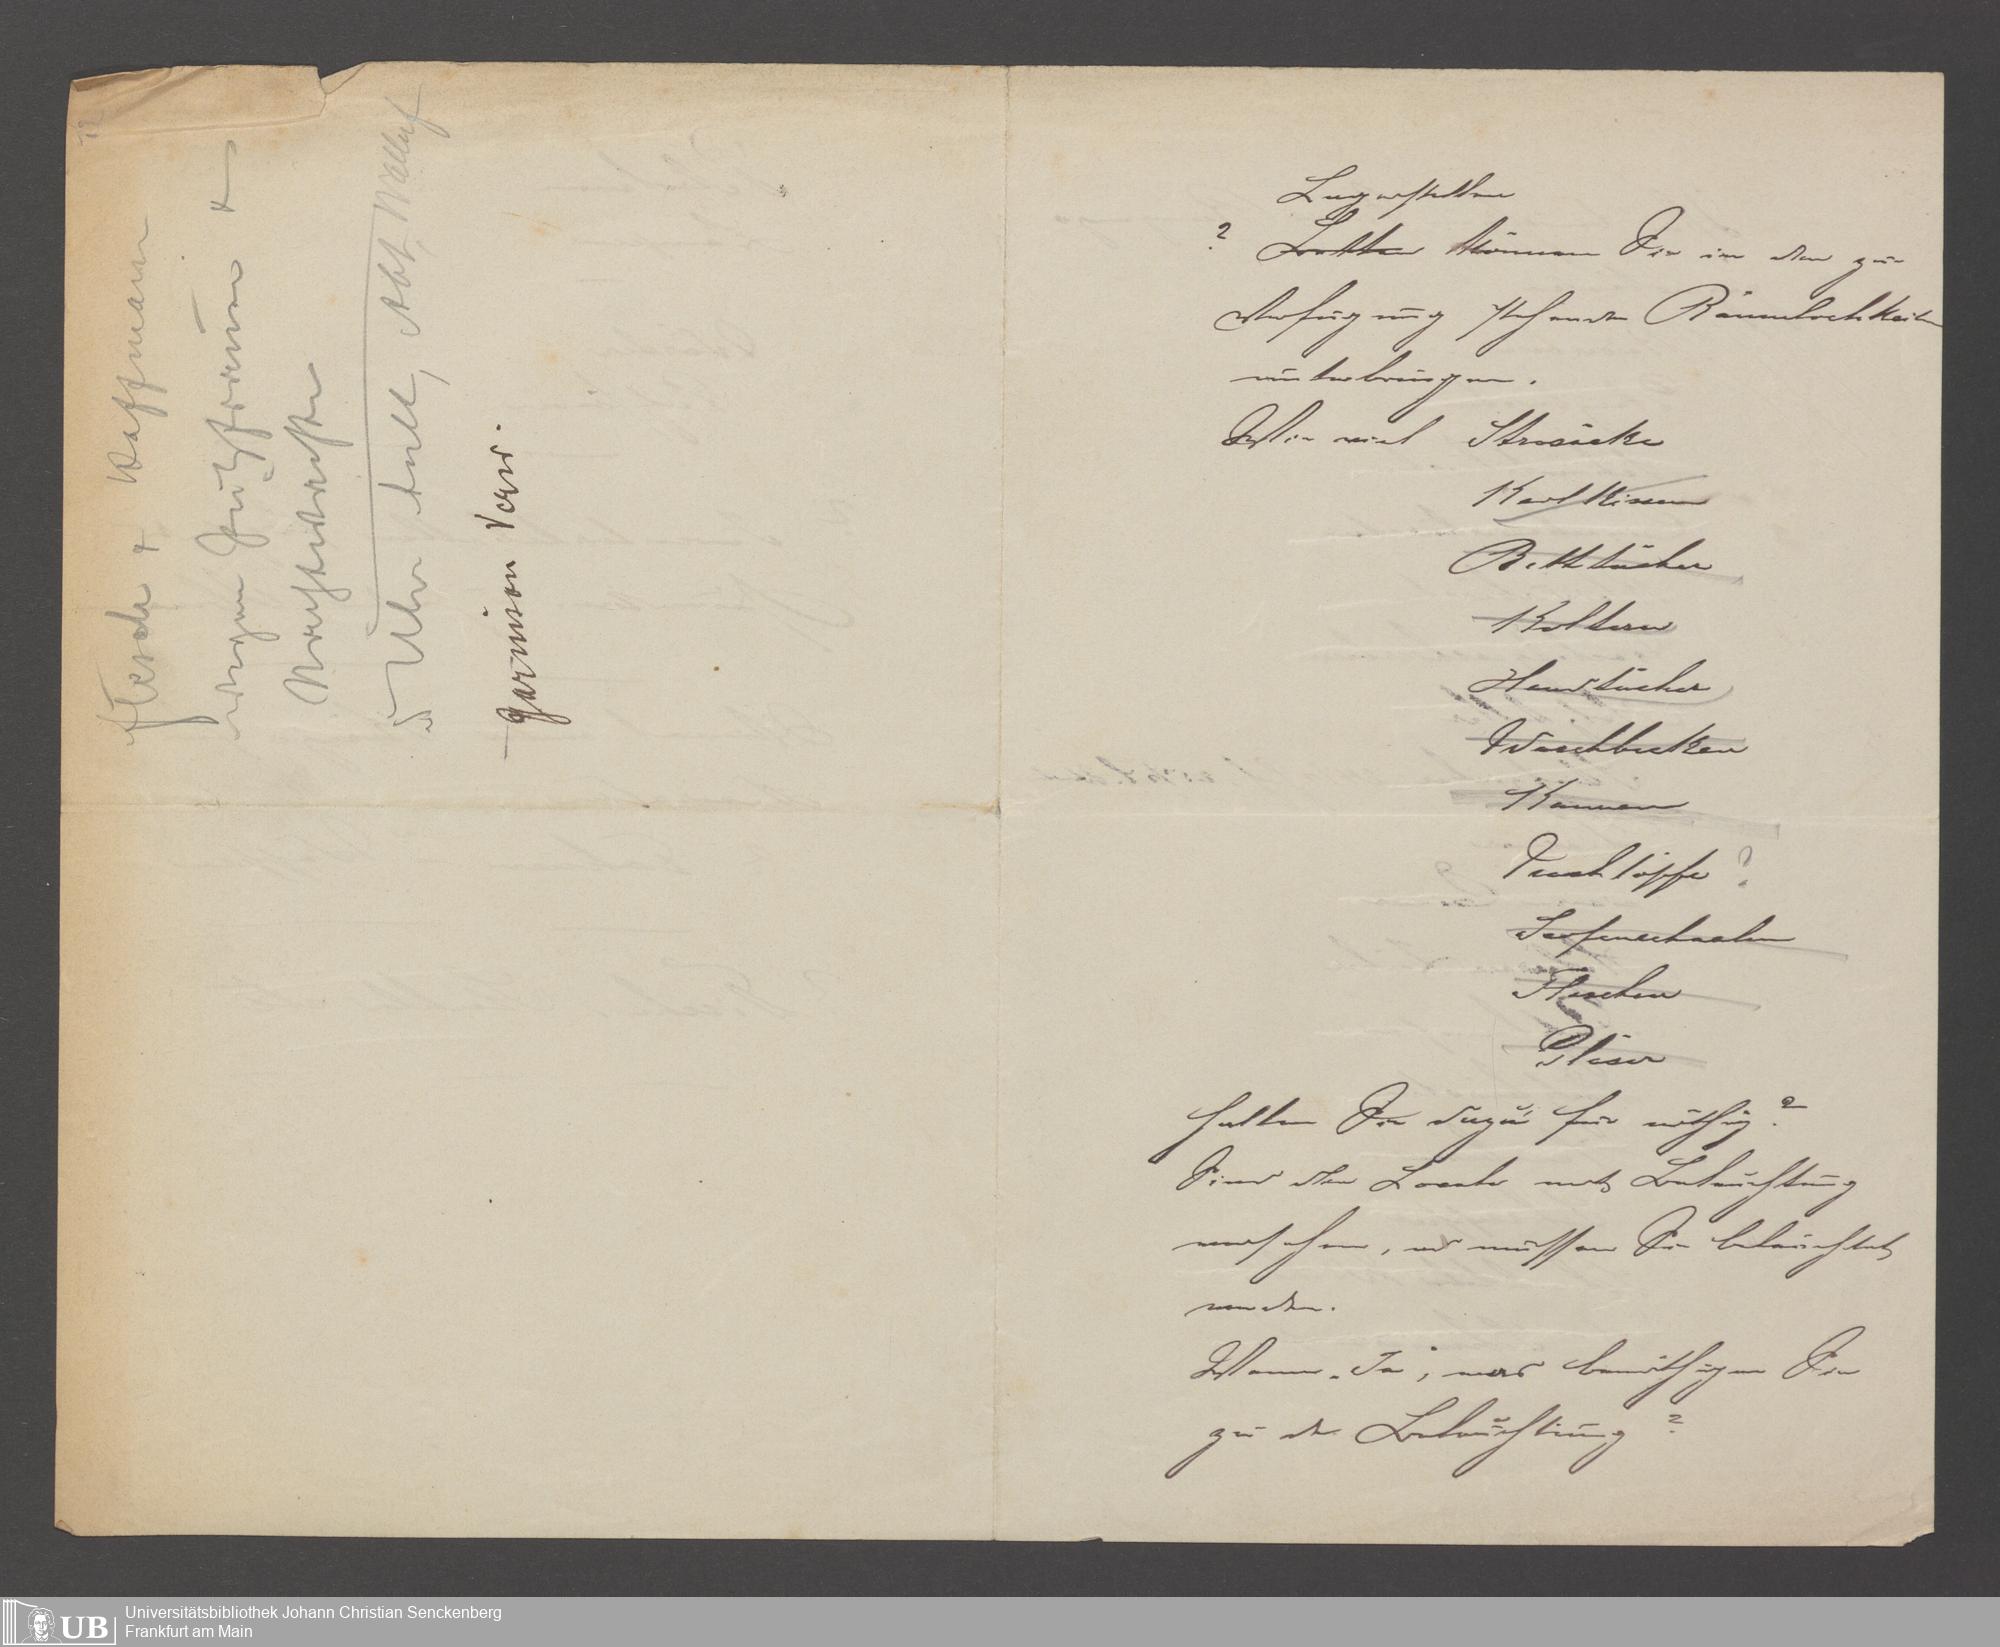 12
Flesch + Kaffmann
wegen Putzfrauen +
5 Uhr Amt, Abt. Wallauf
Garnison Verw.
Lagerstellen
? Betten können Sie in den zur
Verfügung stehenden Räumlichkeiten
unterbringen.
Wie viel Strosäcke
Kopfkissen
Betttücher
Koltern
Handtücher
Waschbecken
Kannen
Nachttöpfe ?
Seifenschaalen
Flaschen
Gläser
halten Sie dazu für nöthig?
Sind die Locale mit Beleuchtung
versehen, od müssen Sie beleuchtet
werden.
Wenn "Ja", was benöthigen Sie
zu der Beleuchtung?
Universitätsbibliothek Johann Christian Senckenberg
Frankfurt am Main
UB